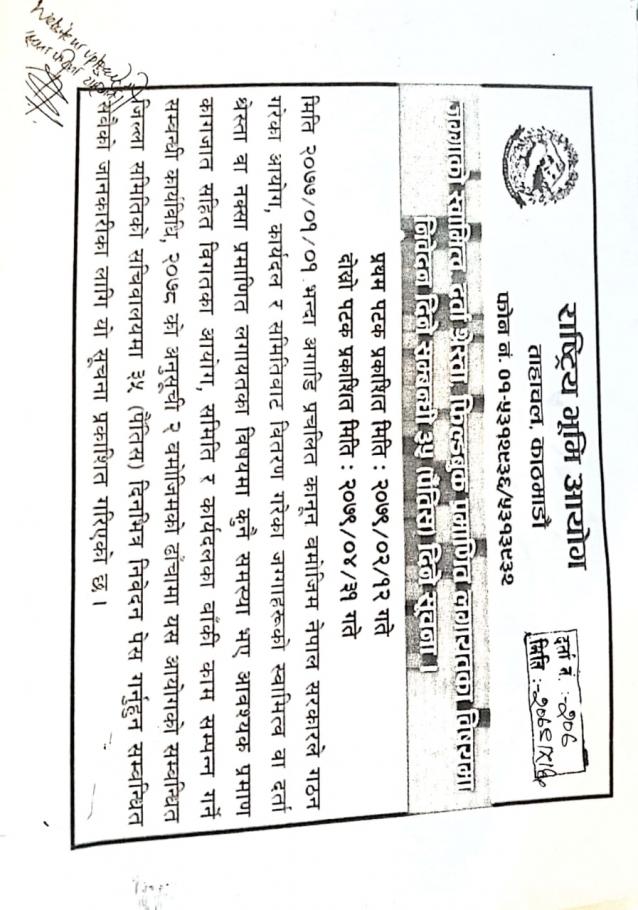 राष्ट्रिय भूमि आयोग
ताहाचल, काठमाडौं
फोन नं. ०१-५३१२९३६/५३१३९३२
दर्ता नं. :-२०६
मिति :-
जग्गाको स्वामित्व, दर्ता श्रेस्ता, फिल्डबुक प्रमाणित लगायतका विषयमा
निवेदन दिने सम्बन्धी ३५ (पैंतिस) दिने सूचना ।
प्रथम पटक प्रकाशित मिति : २०७९/०२/१२ गते
दोस्रो पटक प्रकाशित मिति : २०७९/०४/३१ गते
मिति २०७७/०१/०१ भन्दा अगाडि प्रचलित कानून बमोजिम नेपाल सरकारले गठन
गरेका आयोग, कार्यदल र समितिबाट वितरण गरेका जग्गाहरूको स्वामित्व वा दर्ता
श्रेस्ता वा नक्सा प्रमाणित लगायतका विषयमा कुनै समस्या भए आवश्यक प्रमाण
कागजात सहित विगतका आयोग, समिति र कार्यदलका बाँकी काम सम्पन्न गर्ने
सम्बन्धी कार्यविधि, २०७८ को अनुसूची १ बमोजिमको ढाँचामा यस आयोगको सम्बन्धित
जिल्ला समितिको सचिवालयमा ३५ (पैंतिस) दिनभित्र निवेदन पेस गर्नुहुन सम्बन्धित
सबैको जानकारीका लागि यो सूचना प्रकाशित गरिएको छ ।